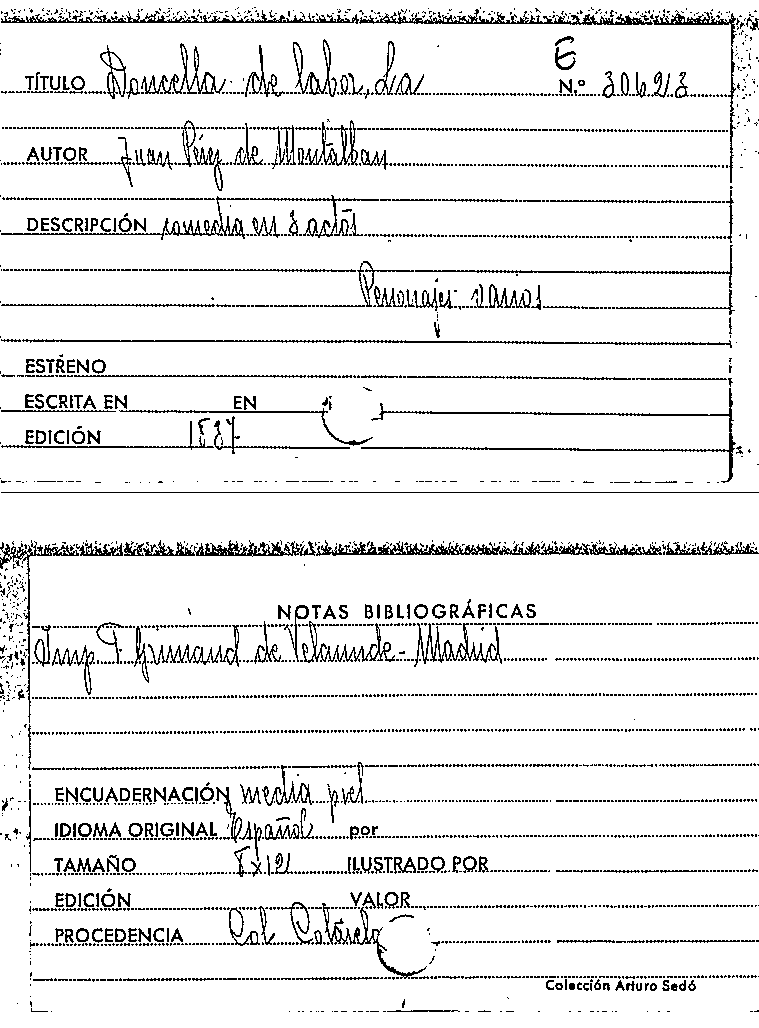 E
TÍTULO Doncella de labor, La N.º 30693
AUTOR Juan Pérez de Montalban
DESCRIPCIÓN comedia en 3 actos
Personajes varios
ESTRENO
ESCRITA EN EN
EDICIÓN 1837
NOTAS BIBLIOGRÁFICAS
Imp F. Grimaud de Velaunde - Madrid
ENCUADERNACIÓN media piel
IDIOMA ORIGINAL Español por
TAMAÑO ILUSTRADO POR
EDICIÓN VALOR
PROCEDENCIA Col Cotarelo
Colección Arturo Sedó